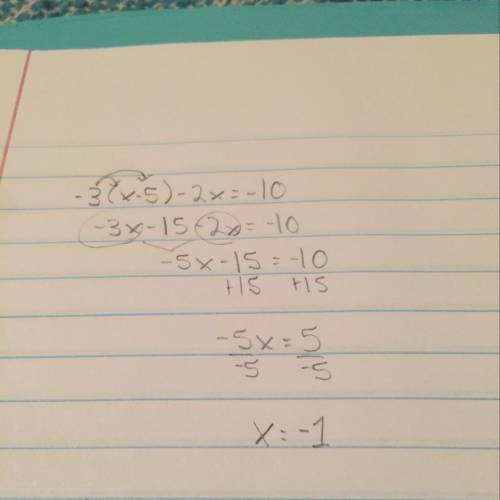 -3(x-5)-2x=-10
-3x-15-2x=-10
-5x-15=-10
+15 +15
-5x=5
-5 -5
x=-1